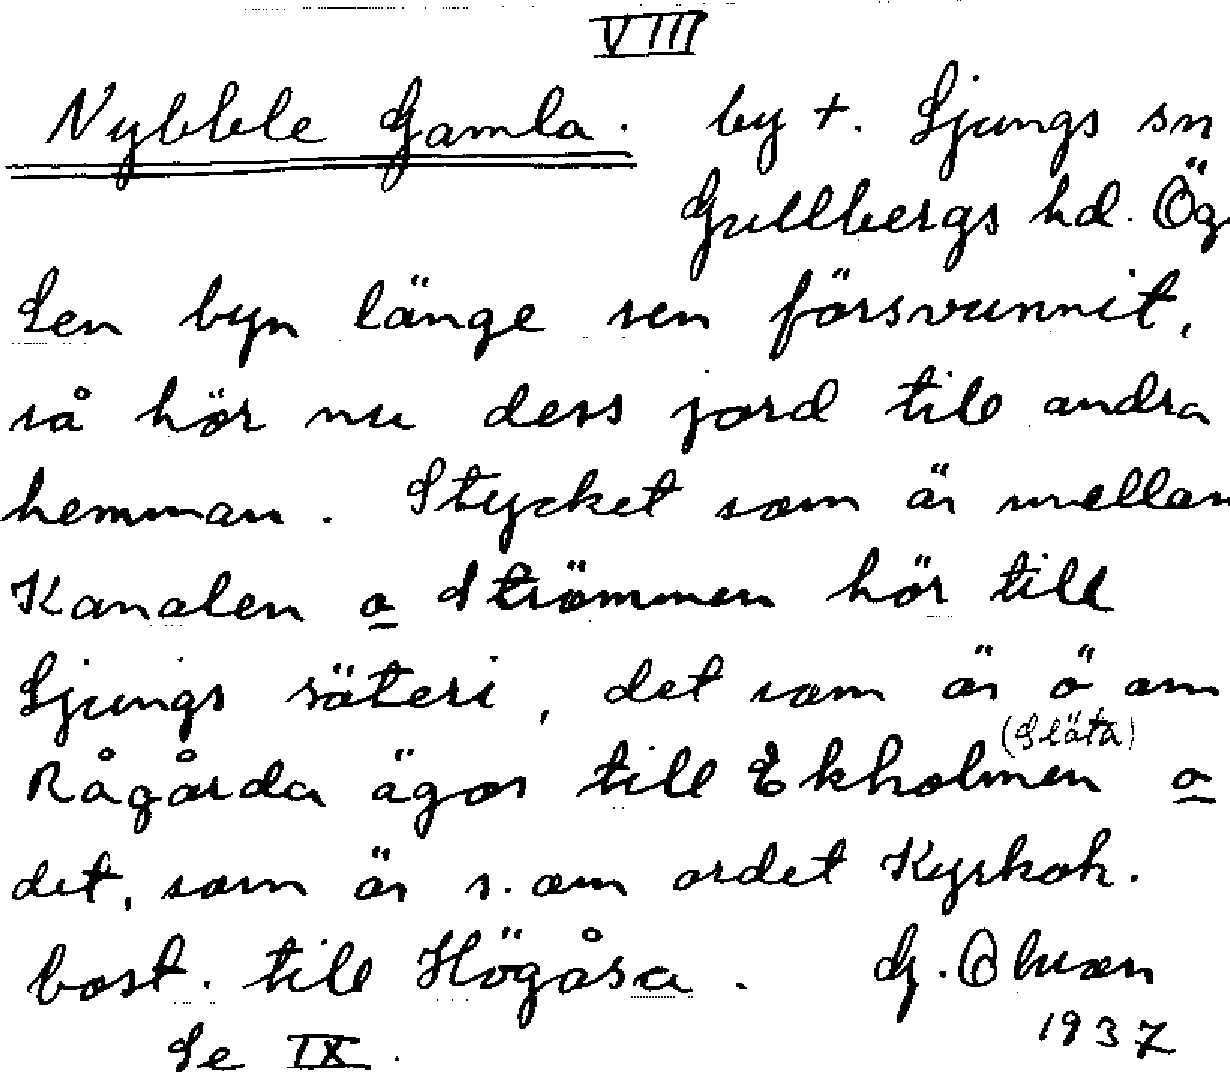 VIII
Nybble Gamla. by +. Ljungs sn
Gullbergs hd. Ög
Sen byn länge sen försvunnit,
så hör nu dess jord till andra
hemman. Stycket som är mellan
Kanalen o Strömmen hör till
Ljungs säteri, det som är ö om
Rågårda ägor till Ekholmen (Släta) o
det, som är s. om ordet Kyrkoh.
bost. till Högåsa. G.
Se IX. 1937